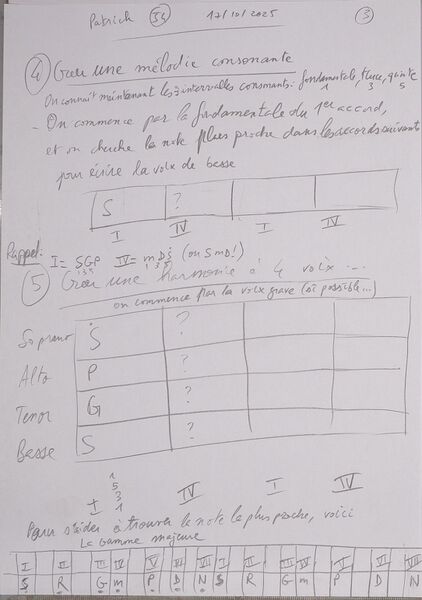 Patrick 17/10/2025 3
4 Créer une mélodie consonante
On connaît maintenant les 3 intervalles consonants: fondamentale, tierce, quinte
1 3 5
- On commence par la fondamentale du 1er accord,
et on cherche la note plus proche dans les accords suivants
pour écrire la voix de basse
S ?
I IV I IV
Rappel: I = SGP IV = mDS (ou SmD!)
1 3 5 1 3 5
5 Créer une harmonie à 4 voix ...
on commence par la voix grave (si possible...)
Soprano S ?
Alto P ?
Tenor G ?
Basse S ?
1
5
3
1
I IV I IV
Pour s'aider à trouver la note la plus proche, voici
la gamme majeure
I II III IV V VI VII I II III IV V VI VII
S R G m P D N S R G m P D N